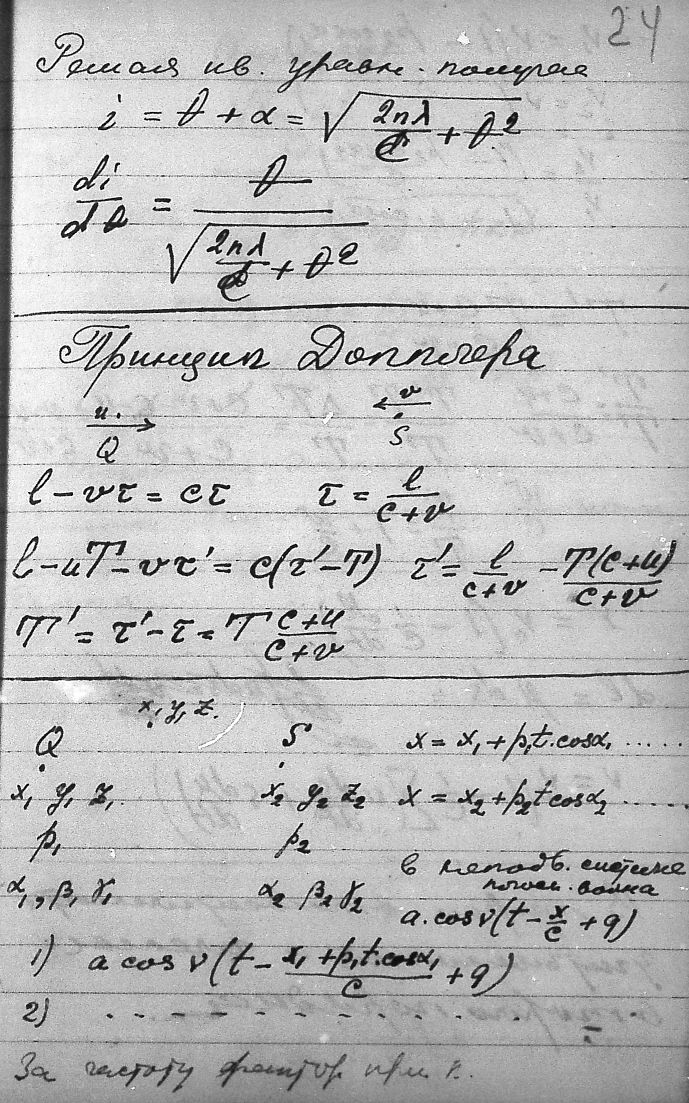 24
Решая кв. уравн. получае
i = θ + α = √(2nλ/C + θ²)
di/dθ = θ/√(2nλ/C + θ²)
Принцип Допплера
u. → Q    ← v S
l − vτ = cτ    τ = l/(c+v)
l − uT − vτ' = c(τ' − T)    τ' = l/(c+v) − T(c+u)/(c+v)
T' = τ' − τ = T (c+u)/(c+v)
x, y, z.
Q    S    x = x₁ + p₁t.cosα₁ .....
x₁ y₁ z₁.    x₂ y₂ z₂    x = x₂ + p₂t cosα₂ .....
p₁    p₂
в неподв. системе
α₁, β₁ γ₁    α₂ β₂ γ₂    волна
a.cos ν(t − x/c + q)
1) a cos ν(t − (x₁ + p₁t.cosα₁)/c + q)
2) . - - - - - - - - - -
За частоту фактор при t.